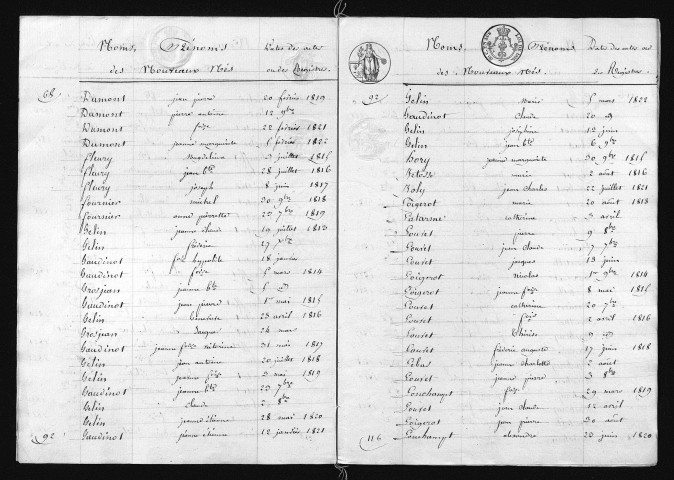 Noms, Prénoms Dates des actes
des Nouveaux Nés ou des Registres
68 Dumont jean pierre 20 février 1819
Dumont pierre antoine 12 9bre
Dumont 22 février 1821
Dumont jeanne marguerite 5 février 1822
fleury magdeleine 3 juillet 1815
fleury jean bte 28 juillet 1816
fleury joseph 8 juin 1817
fournier michel 30 9bre 1818
fournier anne pierrette 25 7bre 1819
Gelin jeanne claude 19 juillet 1813
Gelin 27
Gaudinot hyppolite 18 janvier
Gaudinot 5 mars 1814
Grosjean jeanne bte
Gaudinot jean pierre 1er mai 1815
Gelin 25 avril 1816
Grosjean 24 mars
Gaudinot 31 mai 1817
Gelin jean antoine 20 juillet 1818
Gelin 3 mai 1819
Gaudinot jeanne bte 23 7bre
Gelin claude 2 8bre
Gelin 28 mai 1820
92 Gaudinot jeanne étienne 12 janvier 1821
Noms, Prénoms Dates des actes ou
des Nouveaux Nés des Registres
92 Gelin Marie 5 mars 1822
Gaudinot claude 20
Gelin joséphine 12 juin
Gelin jean bte 6 9bre
hory jeanne marguerite 30 9bre 1815
marie 2 août 1816
joly jean charles 22 juillet 1821
Loigerot marie 20 août 1813
catherine 3 avril
Louset pierre 9 8bre
Louset jean claude 7 7bre
Louset jacques 13 juin
Loigerot nicolas 1er 9bre 1814
Loigerot 8 mai 1815
Louset catherine 20 7bre
Louset 2 avril 1816
Louset thérèse 9
Louset fréderic auguste 17 juin 1818
jeanne charlotte 2 août
Louset jeanne pierre 3 8bre
Louchampt 29 mars 1819
Louset jean claude 12 avril
Loigerot jean pierre 30 août
116 Louchampt alexandre 23 juin 1820